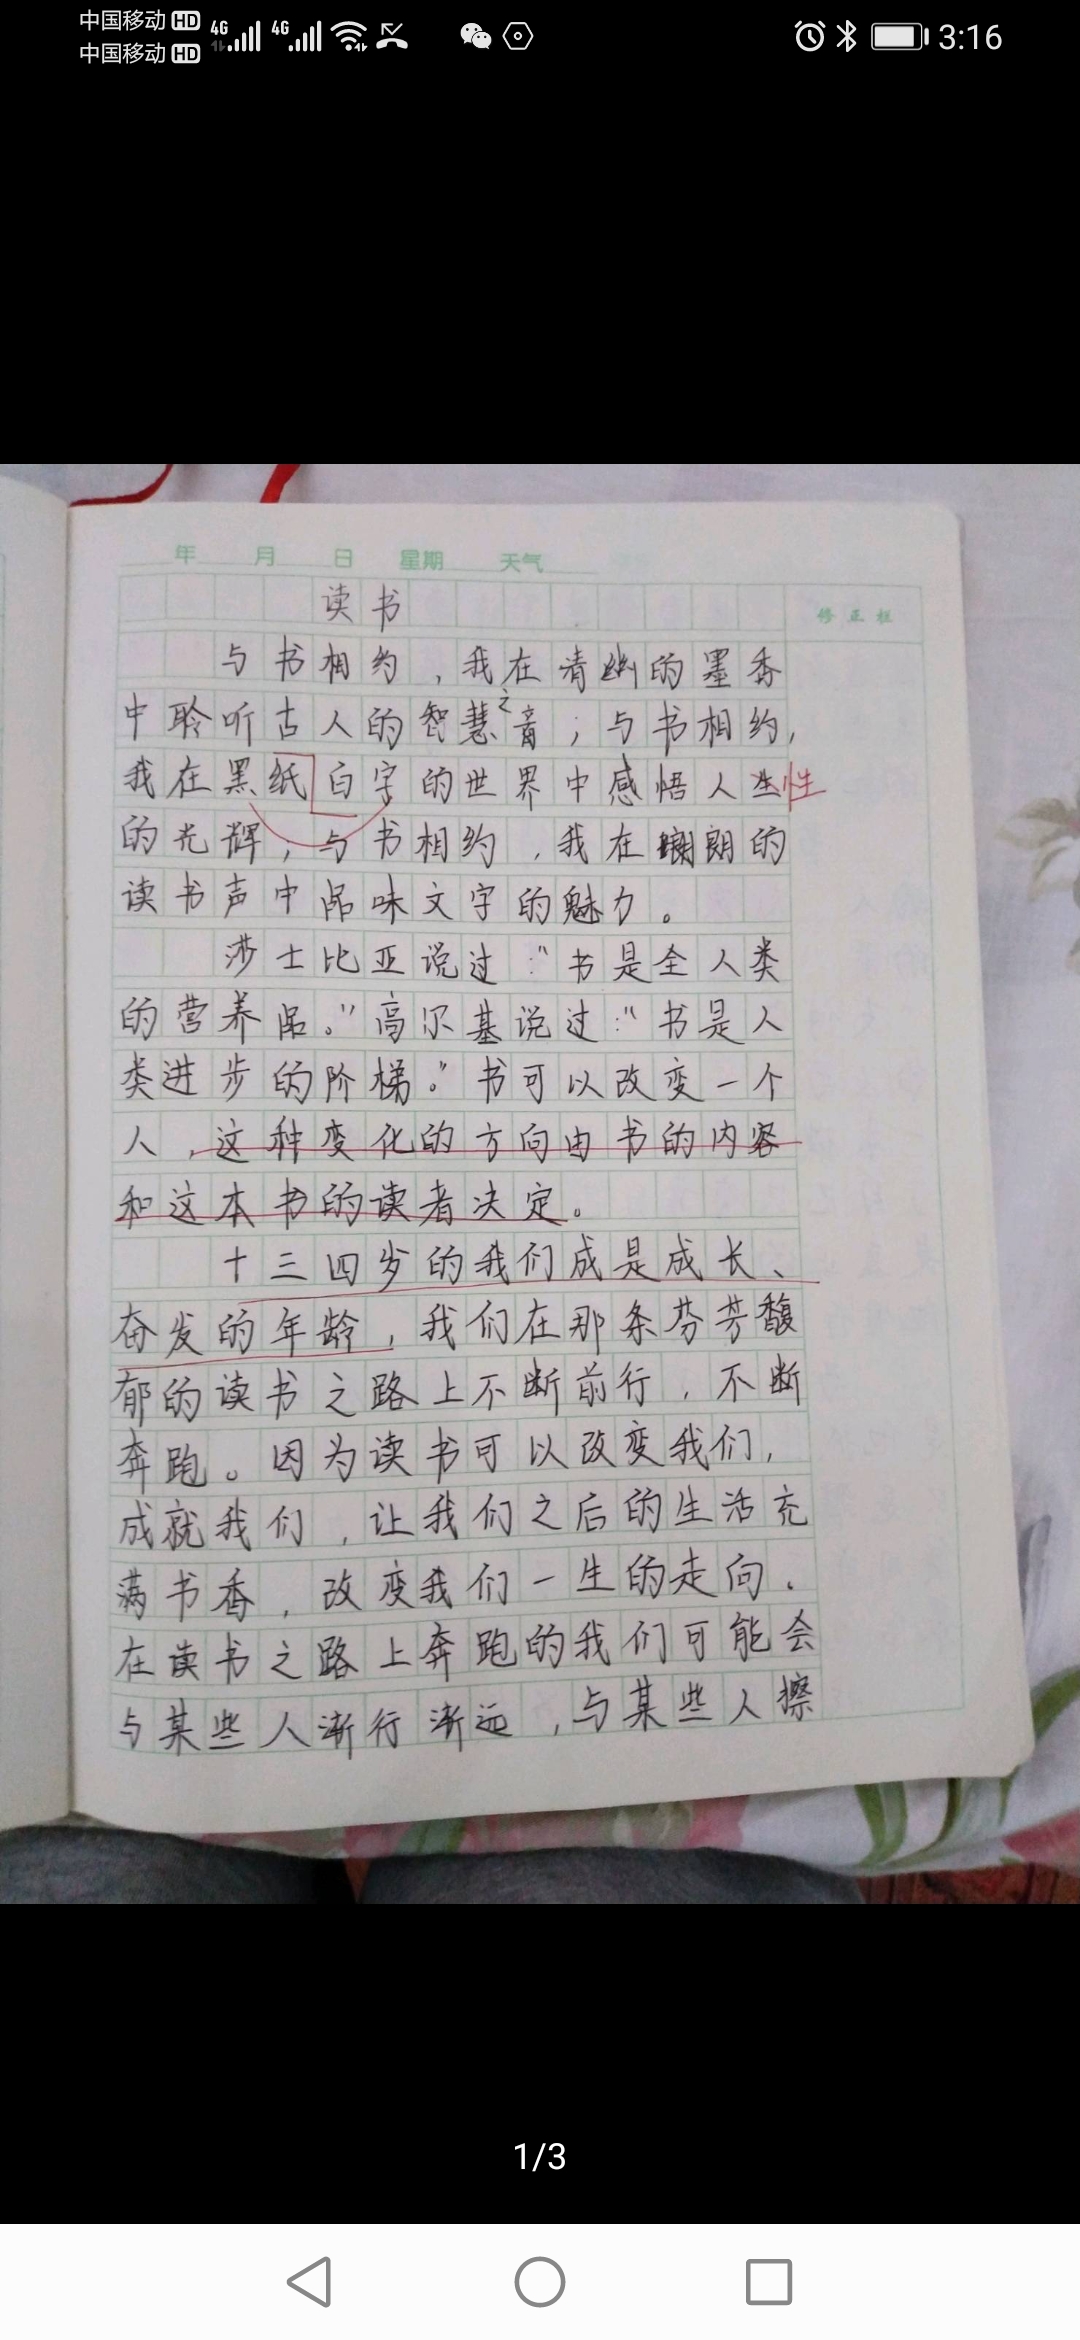 中国移动 HD 4G 4G 3:16
中国移动 HD
年 月 日 星期 天气
读书
修正栏
与书相约，我在清幽的墨香
中聆听古人的智慧之音；与书相约，
我在黑纸白字的世界中感悟人生性
的光辉；与书相约，我在朗朗的
读书声中品味文字的魅力。
莎士比亚说过："书是全人类
的营养品。"高尔基说过："书是人
类进步的阶梯。"书可以改变一个
人，这种变化的方向由书的内容
和这本书的读者决定。
十三四岁的我们成是成长、
奋发的年龄，我们在那条芬芳馥
郁的读书之路上不断前行，不断
奔跑。因为读书可以改变我们，
成就我们，让我们之后的生活充
满书香，改变我们一生的走向．
在读书之路上奔跑的我们可能会
与某些人渐行渐远，与某些人擦
1/3